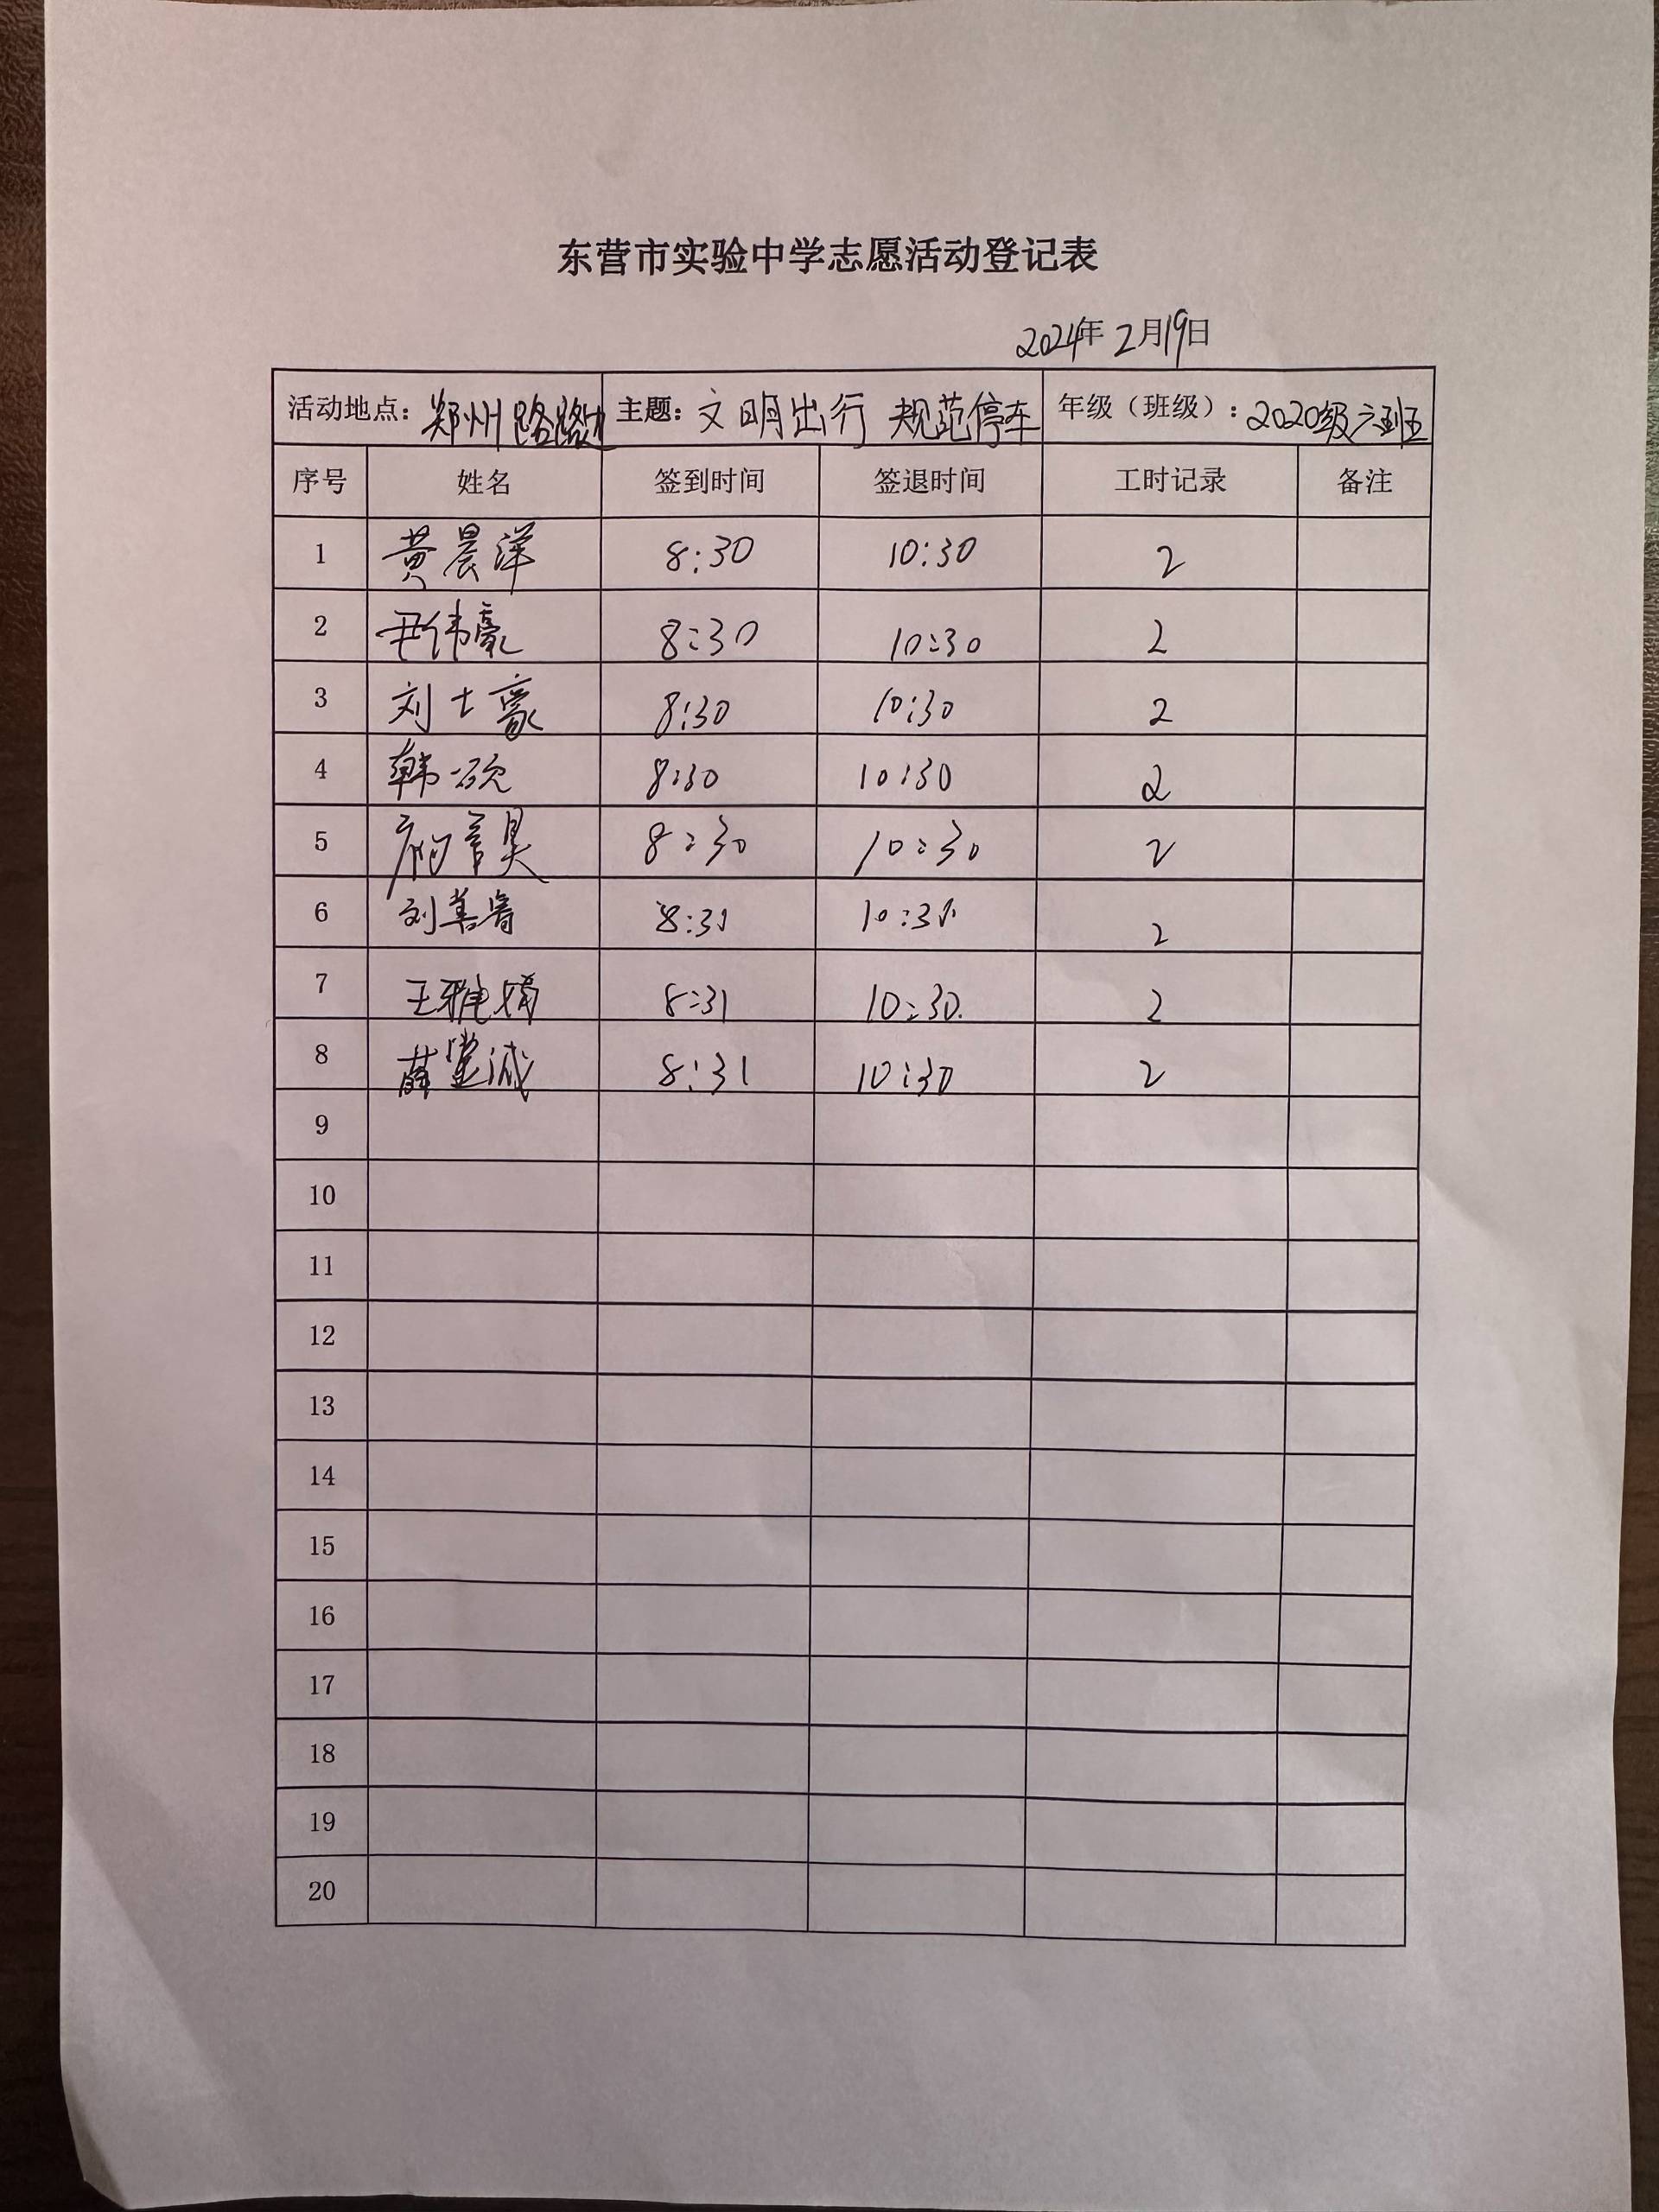 东营市实验中学志愿活动登记表
2024年 2月19日
活动地点：郑州路路边 主题：文明出行 规范停车 年级（班级）：2020级六班
序号 姓名 签到时间 签退时间 工时记录 备注
1 黄晨洋 8:30 10:30 2
2 尹伟豪 8:30 10:30 2
3 刘士豪 8:30 10:30 2
4 韩硕 8:30 10:30 2
5 8:30 10:30 2
6 8:31 2
7 王雅婧 8:31 10:30. 2
8 薛莹诚 8:31 10:30 2
9
10
11
12
13
14
15
16
17
18
19
20